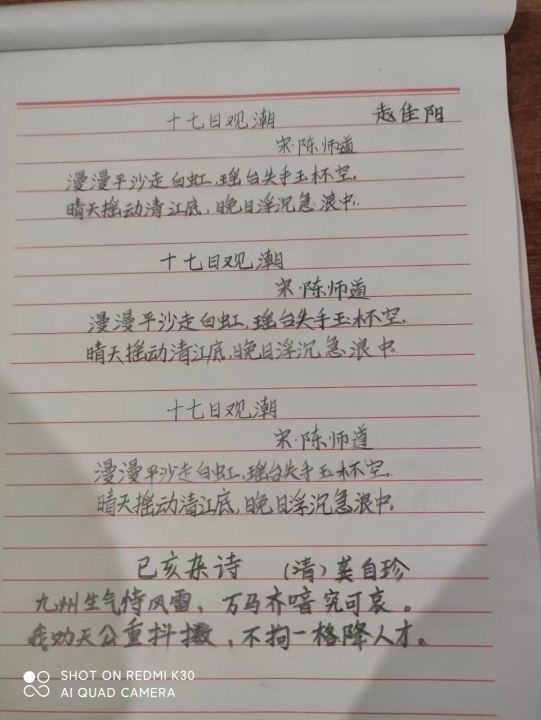 十七日观潮 赵佳阳
宋·陈师道
漫漫平沙走白虹,瑶台失手玉杯空。
晴天摇动清江底,晚日浮沉急浪中。
十七日观潮
宋·陈师道
漫漫平沙走白虹,瑶台失手玉杯空。
晴天摇动清江底,晚日浮沉急浪中。
十七日观潮
宋·陈师道
漫漫平沙走白虹,瑶台失手玉杯空。
晴天摇动清江底,晚日浮沉急浪中。
已亥杂诗 (清)龚自珍
九州生气恃风雷、万马齐喑究可哀。
我劝天公重抖擞,不拘一格降人才。
SHOT ON REDMI K30
AI QUAD CAMERA